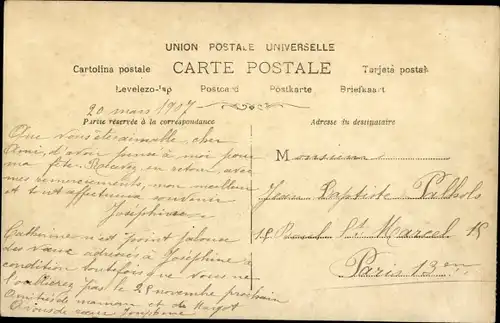 UNION POSTALE UNIVERSELLE
Cartolina postale CARTE POSTALE Tarjeta postal
Levelezo-lap Postcard Postkarte Briefkaart
20 mars 1907
Partie réservée à la correspondance
Adresse du destinataire
Que vous êtes aimable, cher
Ami, d'avoir pensé à moi pour
ma fête. Recevez en retour, avec
mes remerciements, mon meilleur
et tout affectueux souvenir
Joséphine
Catherine n'est point jalouse
des vœux adressés à Joséphine à
condition toutefois que vous ne
l'oublierez pas le 25 novembre prochain
Amitiés de maman et de Margot
Monsieur
Jean Baptiste
18 Boul. St Marcel 18
Paris 13em